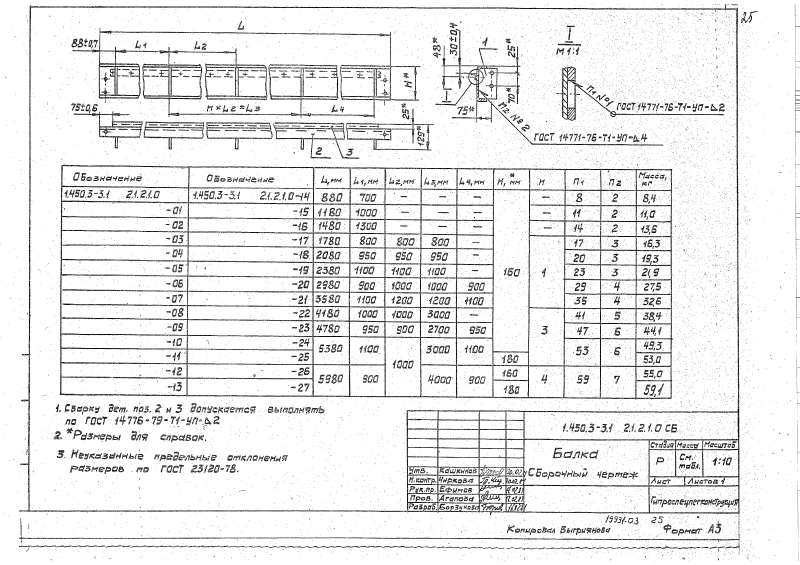 25
L
88±0,7
L1
L2
H*
75±0,6
n×L2=L3
L4
25*
129*
2
3
48*
30±0,4
1
25*
70*
75*
I
П2 №2
ГОСТ 14771-76-Т1-УП-Δ4
I
М 1:1
П1 №1
ГОСТ 14771-76-Т1-УП-Δ2
Обозначение Обозначение L,мм L1,мм L2,мм L3,мм L4,мм H,* мм n П1 П2 Масса, кг
1.450.3-3.1 2.1.2.1.0 1.450.3-3.1 2.1.2.1.0-14 880 700 — — — — 8 2 8,4
-01 -15 1180 1000 — — — — 11 2 11,0
-02 -16 1480 1300 — — — — 14 2 13,6
-03 -17 1780 800 800 800 — 17 3 16,3
-04 -18 2080 950 950 950 — 20 3 19,3
-05 -19 2380 1100 1100 1100 — 160 1 23 3 21,9
-06 -20 2980 900 1000 1000 900 29 4 27,5
-07 -21 3580 1100 1200 1200 1100 35 4 32,6
-08 -22 4180 1000 1000 3000 — 41 5 38,4
-09 -23 4780 950 900 2700 950 3 47 6 44,1
-10 -24 5380 1100 1000 3000 1100 53 6 49,3
-11 -25 180 53,0
-12 -26 5980 900 4000 900 160 4 59 7 55,0
-13 -27 180 59,1
1. Сварку дет. поз. 2 и 3 допускается выполнять
по ГОСТ 14776-79-Т1-УП-Δ2
2. *Размеры для справок.
3. Неуказанные предельные отклонения
размеров по ГОСТ 23120-78.
1.450.3-3.1 2.1.2.1.0 СБ
Балка
Сборочный чертеж
Стадия Масса Масштаб
Р См. табл. 1:10
Лист Листов 1
Гипроспецлегконструкция
Утв. Кашкинов
Н.контр. Чиркова
Рук.пр. Ефимов
Пров. Агапова
Разраб. Борзунова
19931-03 25
Копировал Выгриянова Формат А3